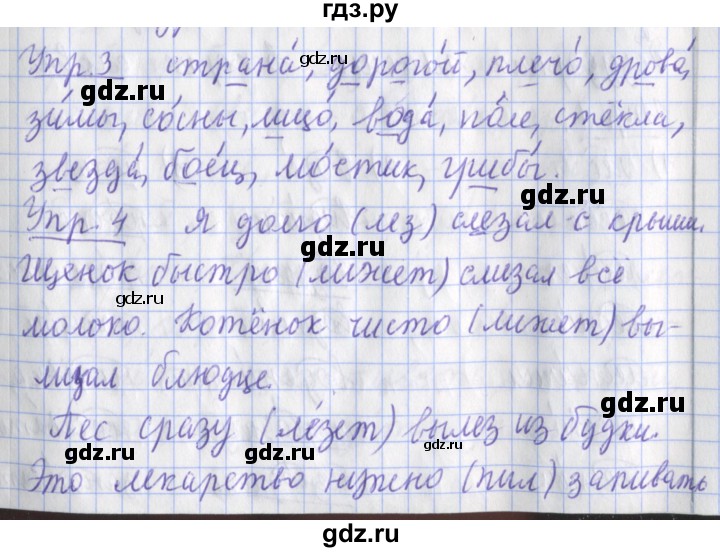 гдз.ру
Упр.3 страна́, дорого́й, плечо́, дрова́,
зи́мы, со́сны, лицо́, вода́, по́ле, стёкла,
звезда́, бое́ц, мо́стик, грибы́.
Упр. 4 Я долго (лез) слезал с крыши.
Щенок быстро (лижет) слизал всё
молоко. Котёнок чисто (лижет) вы-
лизал блюдце.
Пёс сразу (ле́зет) вылез из будки.
Это лекарство нужно (пил) запивать
gdz.ru
gdz.ru
gdz.ru
gdz.ru
gdz.ru
gdz.ru
gdz.ru
gdz.ru
gdz.ru
gdz.ru
gdz.ru
gdz.ru